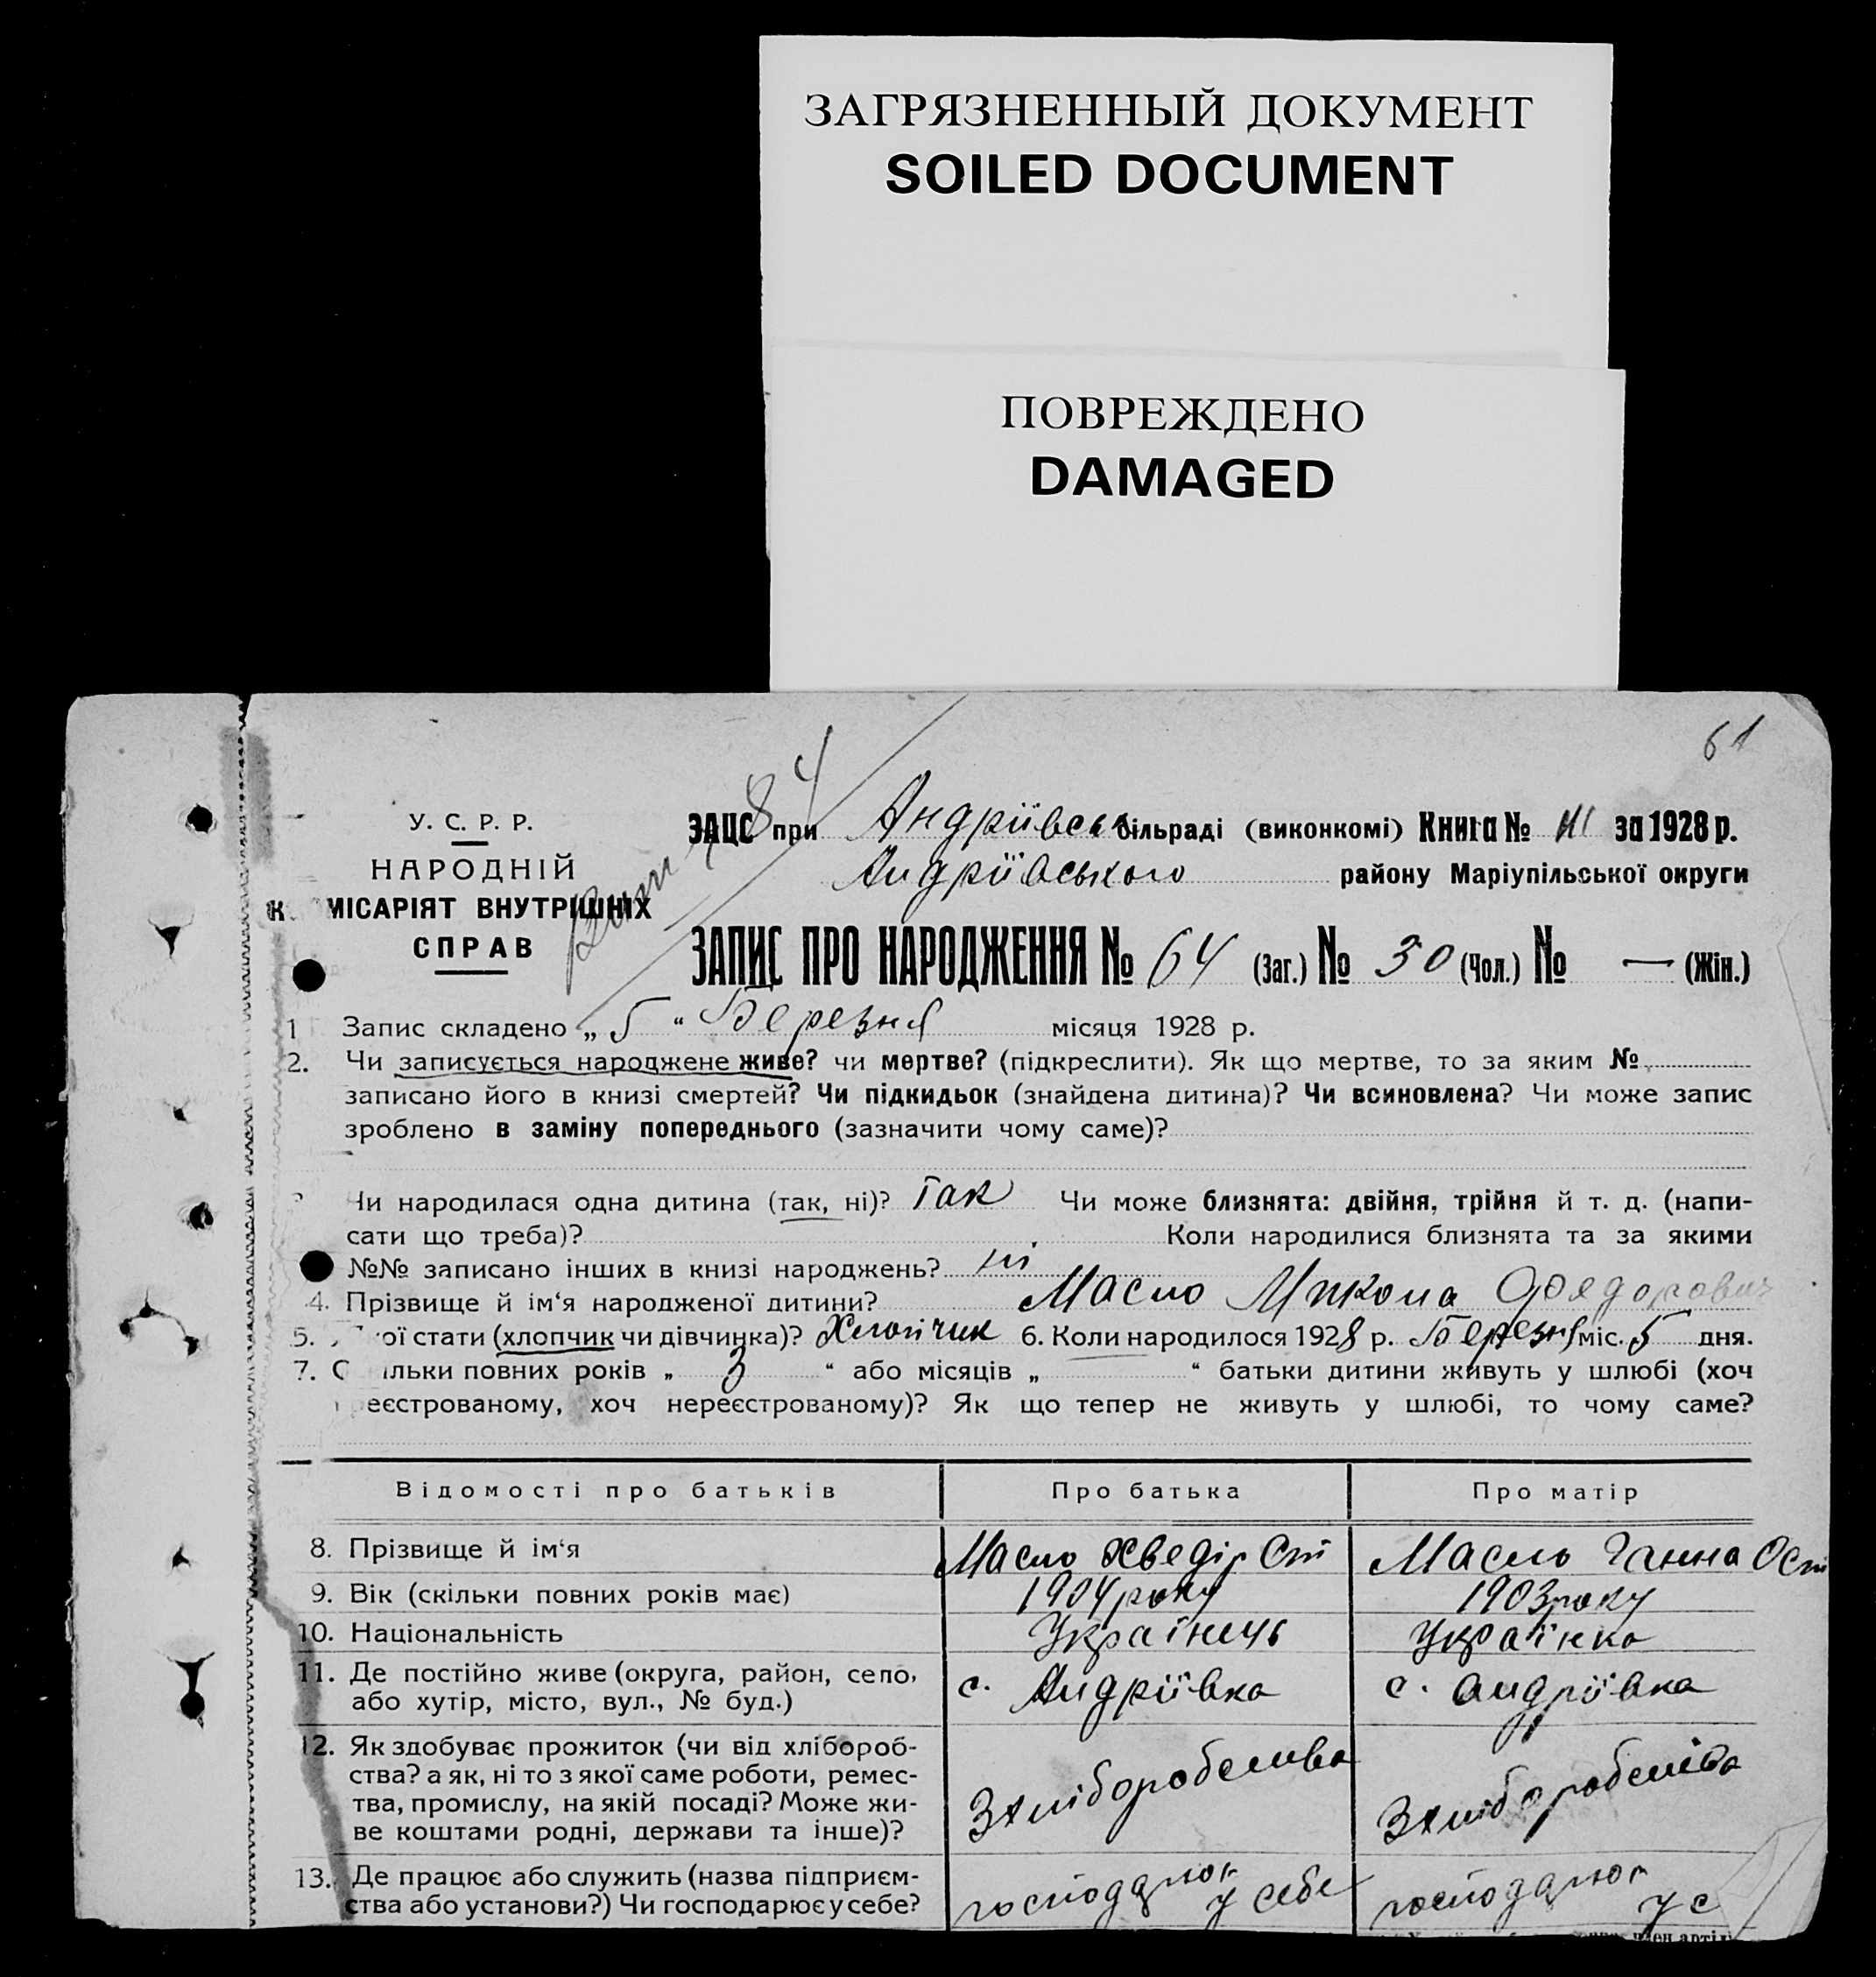 ЗАГРЯЗНЕННЫЙ ДОКУМЕНТ
SOILED DOCUMENT
ПОВРЕЖДЕНО
DAMAGED
61
84
У. С. Р. Р.
НАРОДНІЙ
К МІСАРІЯТ ВНУТРІШНІХ
СПРАВ
ЗАЦС при Андріївськ сільраді (виконкомі) Книга № III за 1928 р.
Андріївського району Маріупільської округи
ЗАПИС ПРО НАРОДЖЕННЯ № 64 (Заг.) № 30 (Чол.) № — (Жін.)
1 Запис складено „ 5 “ Березня місяця 1928 р.
2. Чи записується народжене живе? чи мертве? (підкреслити). Як що мертве, то за яким №
записано його в книзі смертей? Чи підкидьок (знайдена дитина)? Чи всиновлена? Чи може запис
зроблено в заміну попереднього (зазначити чому саме)?
Чи народилася одна дитина (так, ні)? Так Чи може близнята: двійня, трійня й т. д. (напи-
сати що треба)? Коли народилися близнята та за якими
№№ записано інших в книзі народжень? ні
4. Прізвище й ім‘я народженої дитини? Масло Микола Федорович
5. ої стати (хлопчик чи дівчинка)? Хлопчик 6. Коли народилось 1928 р. Березня міс. 5 дня.
7. С ільки повних років „ 3 “ або місяців „ “ батьки дитини живуть у шлюбі (хоч
реєстрованому, хоч нереєстрованому)? Як що тепер не живуть у шлюбі, то чому саме?
Відомості про батьків Про батька Про матір
8. Прізвище й ім‘я Масло Хведір Ст Масло Ганна Ост
9. Вік (скільки повних років має) 1904 року 1903 року
10. Національність Українець Українка
11. Де постійно живе (округа, район, село, с. Андріївка с. Андріївка
або хутір, місто, вул., № буд.)
12. Як здобуває прожиток (чи від хлібороб- З хліборобства З хліборобства
ства? а як, ні то з якої саме роботи, ремес-
тва, промислу, на якій посаді? Може жи-
ве коштами родні, держави та інше)?
13. Де працює або служить (назва підприєм- господарює господарює
ства або установи?) Чи господарює у себе? у себе у с